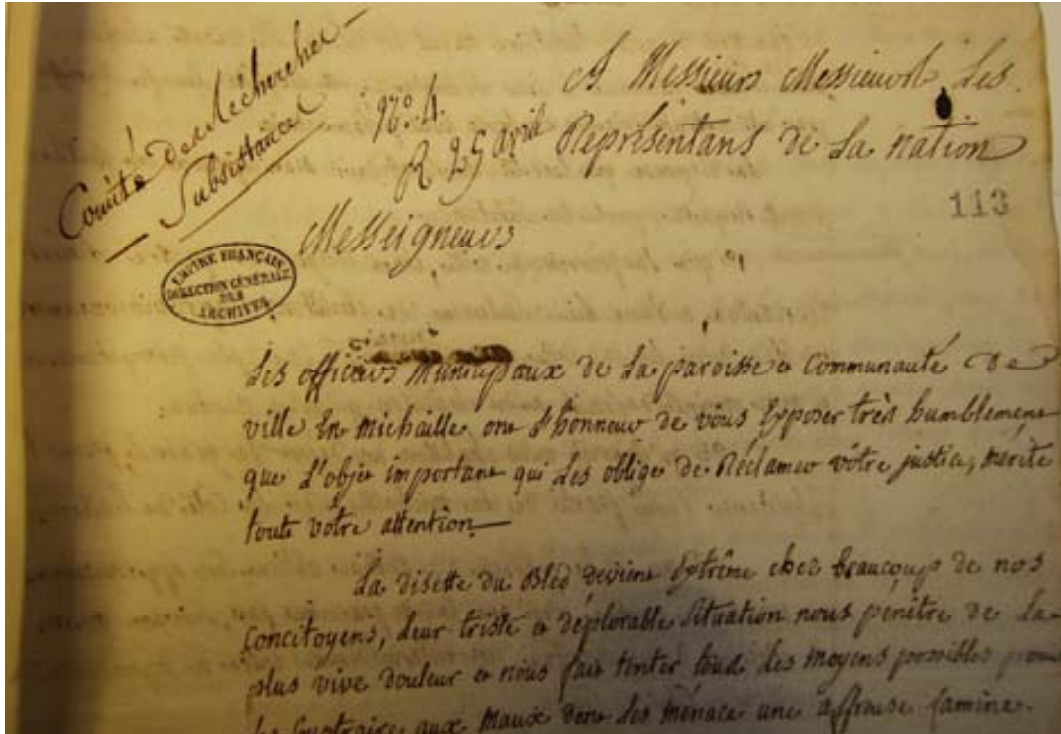 Comité des Recherches
Subsistances
N.º 4.
R 25 avril
A Messieurs Messieurs Les
Représentans de La nation
113
Messeigneurs
EMPIRE FRANÇAIS
DIRECTION GÉNÉRALE
DES
ARCHIVES
Les officiers Municipaux de La paroisse et Communauté De
ville En michaille ont L'honneur de vous Exposer très humblement
que L'objet important qui Les oblige de Réclamer vôtre justice, mérite
toute vôtre attention
La disette du Bled devient Extrême chez beaucoup de nos
Concitoyens, Leur triste et déplorable Situation nous pénêtre de La
plus vive douleur et nous fait tenter tous Les moyens possibles pour
Les Soustraire aux Maux dont Les ménace une affreuse famine.